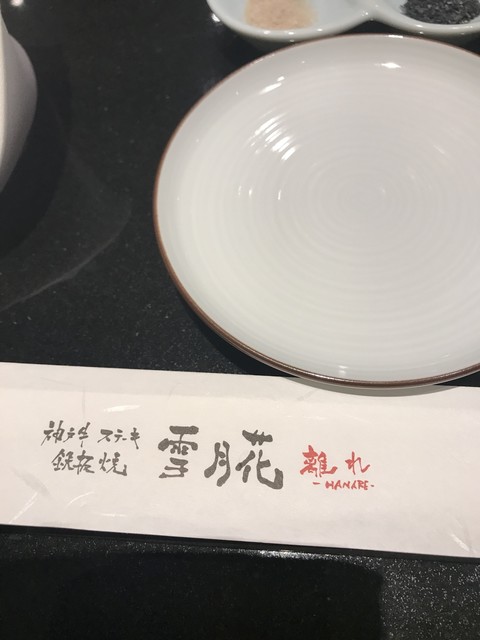 神戸牛 ステーキ
鉄板焼
雪月花
離れ
-HANARE-